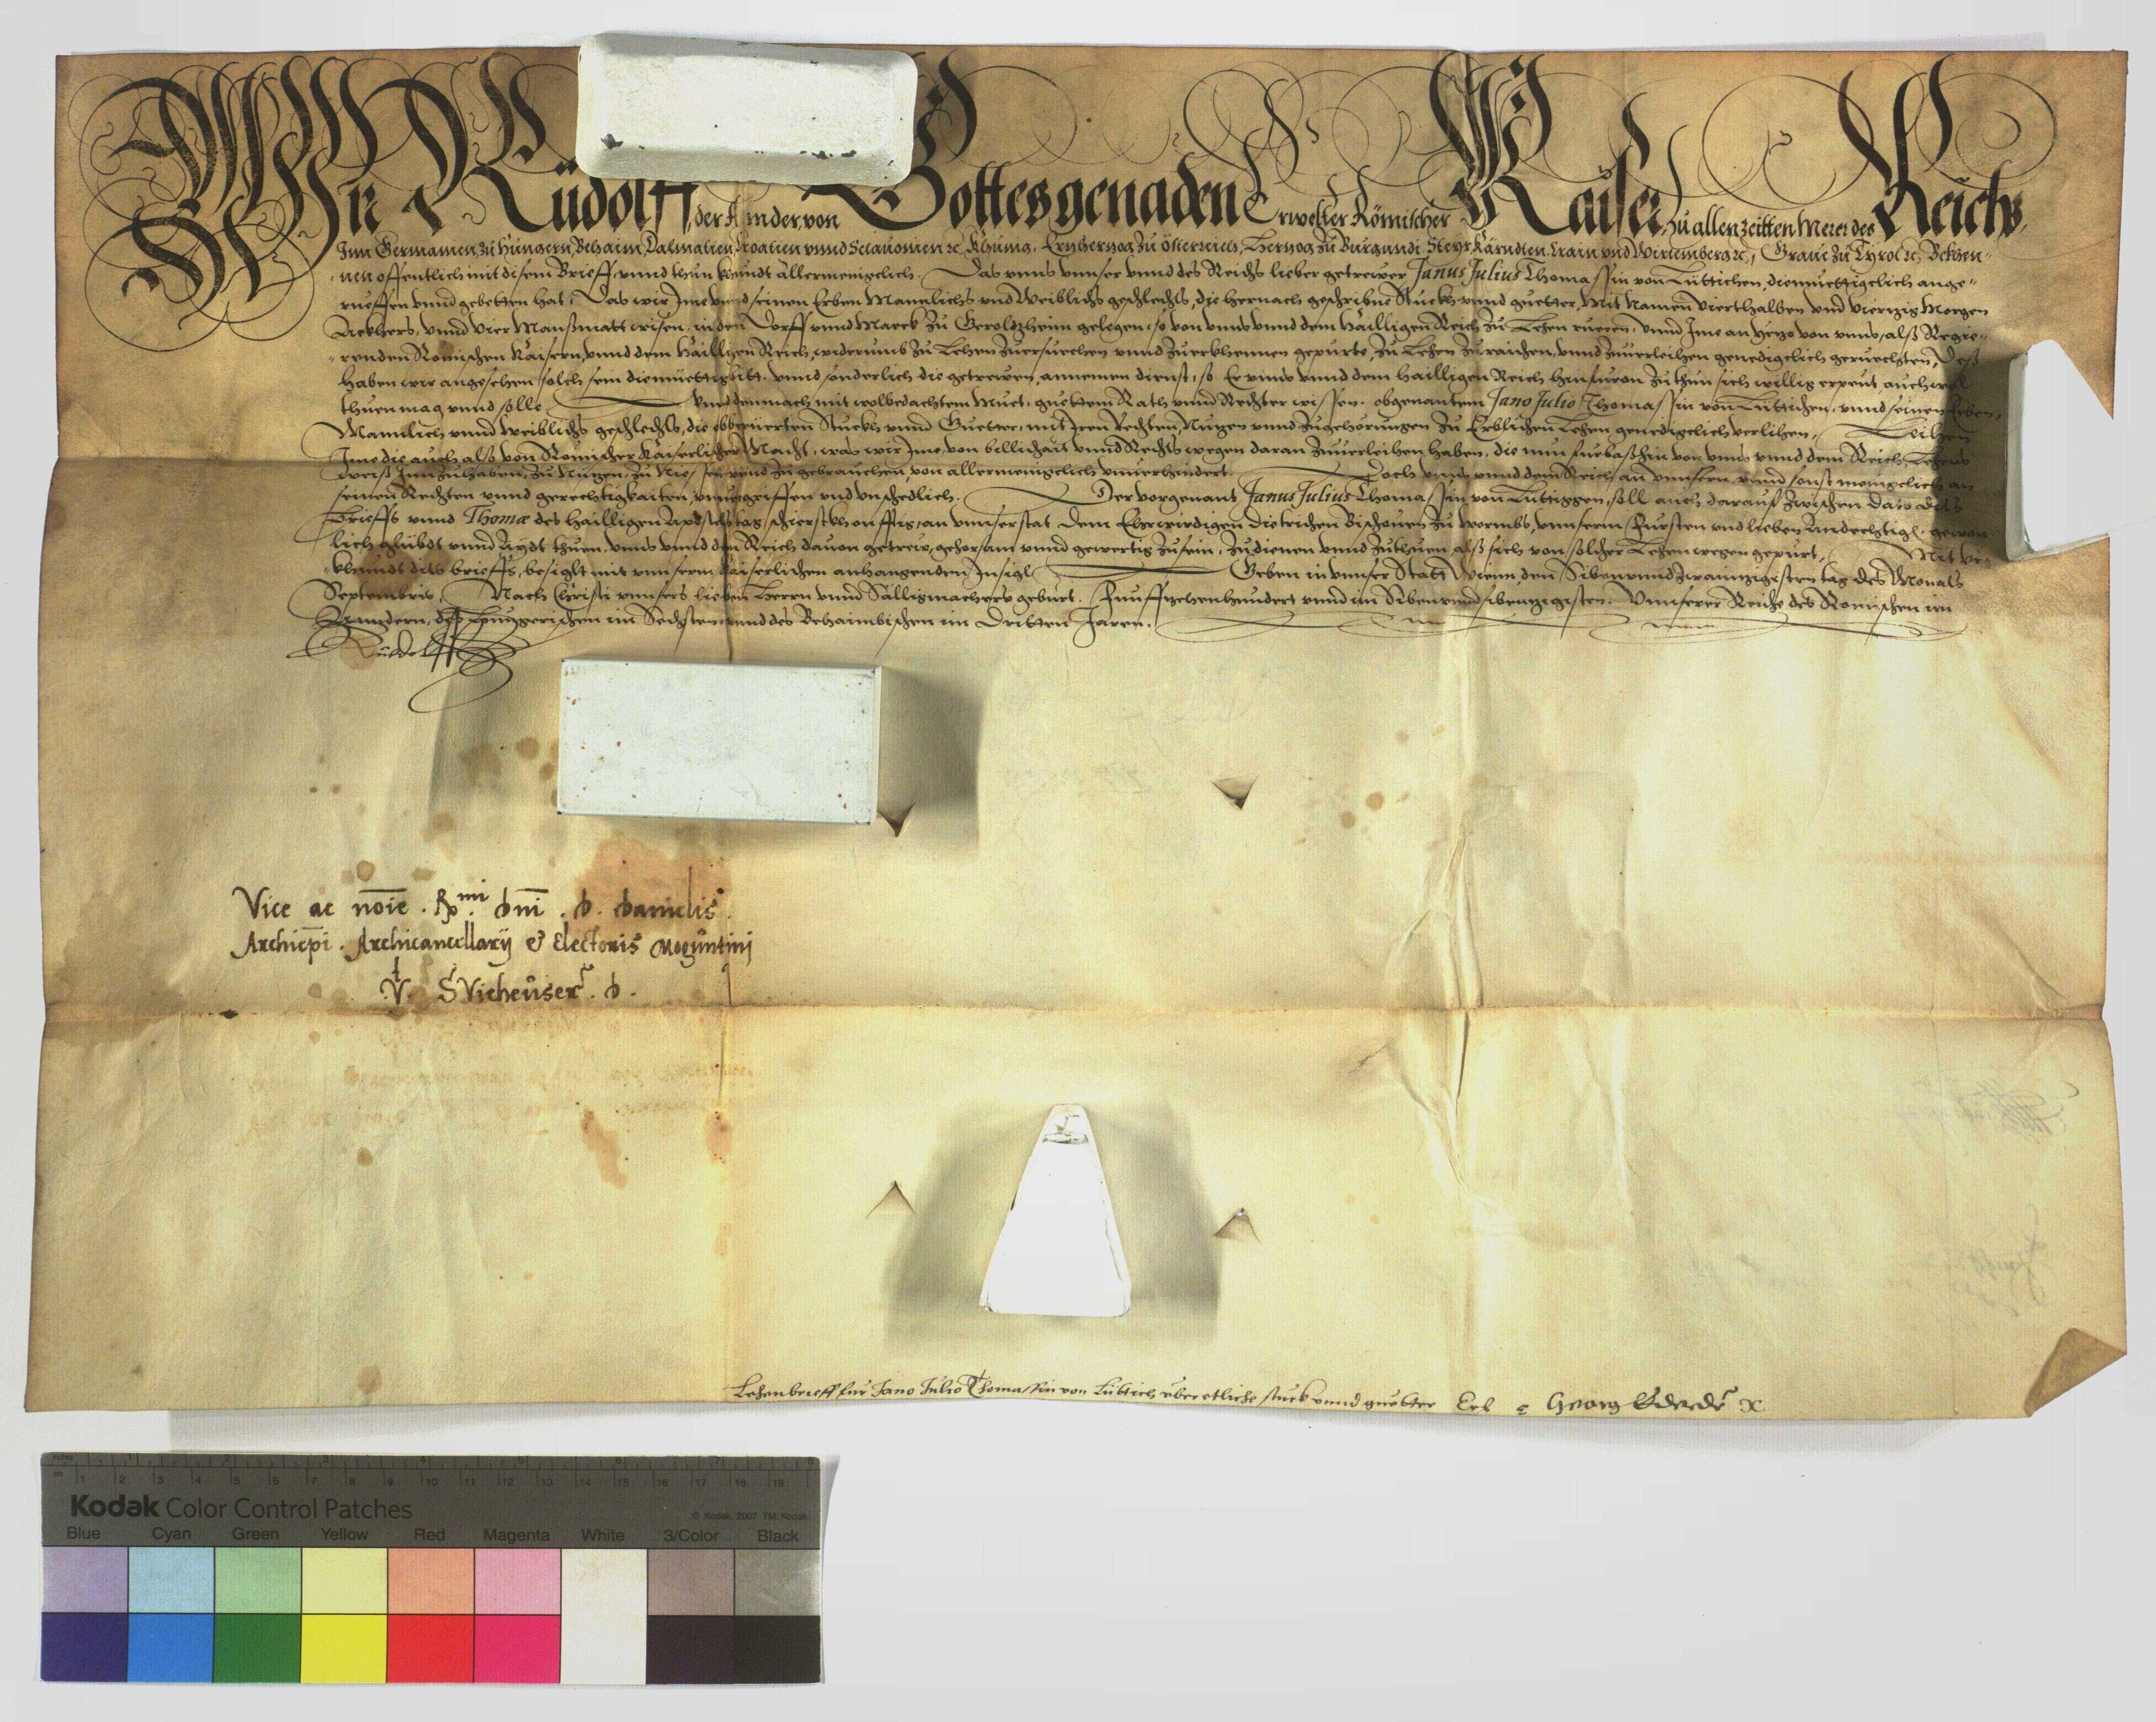 Wir Rudolff der Ander, von Gottes genaden Erwelter Römischer Kaiser, zu allen Zeitten Merer des Reichs,
Inn Germanien, zu Hungern, Behaim, Dalmatien, Croatien vnnd Sclauonien ꝛc. Khünig, Ertzhertzog zu Österreich, Hertzog zu Burgundi, Steyr, Kärndten, Crain vnd Wirtemberg ꝛc, Graue zu Tyrol ꝛc, Bekhen-
nen offentlich mit disem Brieff, vnnd thun khundt allermenigelich. Das vnns vnnser vnnd des Reichs lieber getrewer Janus Julius Thomassin von Lüttichen, diemuettigelich ange-
rueffen vnnd gebetten hat, Das wir Ime vnnd seinen Erben Mannlichs vnd Weiblichs geschlechts, die hernach geschribne Stuckh vnnd guetter, Mit Namen Vierthalben vnd Vierzig Morgen
Ackhers, vnnd Vier Manßmatt wisen, in den Dorff vnnd Marck zu Geroltzheim gelegen, so von vnns vnnd dem Hailligen Reich zu Lehen rueren, vnnd Ime an yetzo von vnns, alß Regie-
renden Römischen Kaisern, vnnd dem Hailligen Reich, widerumb zu Lehen zuersuechen vnnd zuerkhennen gepurte, zu Lehen zuraichen, vnnd zuuerleihen genedigclich geruechten, Deß
haben wir angesehen solch sein diemüettig bitt, vnnd sonderlich die getrewen, annemen dienst, so Er vnns vnnd dem hailligen Reich hinfuron zu thun sich willig erpeut, auch wol
thuen mag vnnd solle, vnnd demnach mit wolbedachtem Muet, guettem Rath vnnd Rechter wissen, obgenantem Jano Julio Thomassin von Lüttichen, vnnd seinen Erben,
Mannlich vnnd Weiblichs geschlechts, die obberuerten Stuckh vnnd Guetter, mit Iren Rechten, Nutzen vnnd Zugehörungen zu Erblichen Lehen genedigclich verlihen, Leihen
Ime die auch alß von Römischer Kaiserlicher Macht, was wir Ime von billichait vnnd Rechts wegen daran zuuerleihen haben, die nun furbaßhin von vnns vnnd dem Reich, Lehens
weiß Innzuhaben, zu Nutzen, zu Niessen vnnd zu gebrauchen, von allermenigelich vnuerhindert. Doch vnns vnnd dem Reich, an vnnsern, vnnd sonst menigelich an
seinen Rechten vnnd gerechtigkaiten, vnuergriffen vnd vnschedlich. Der vorgenant Janus Julius Thomassin von Lüttiggen, soll auch darauf zwischen dato dits
Brieffs vnnd Thomæ des hailligen Apostls tag, schierstkhonfftig, an vnnser stat dem Ehrwirdigen Dietrichen Bischouen zu Wormbs, vnnserm Fürsten vnd lieben Andechtigē, gewon-
lich glübdt vnnd Aydt thuen, vnns vnnd dem Reich dauon getrew, gehorsam vnnd gewertig zu sein, zu dienen vnnd zuthuen, alß sich von solcher Lehen wegen gepürt, Mit vr-
khundt dits brieffs, besiglt mit vnnserm Kaiserlichen anhangenden Insigl, Geben in vnnser Statt Wienn, den Sibenvnndzwaintzigisten tag des Monats
Septembris, Nach Christi vnnsers lieben Herrn vnnd Sälligmachers geburt, Funffzehenhundert vnnd im Sibenvnndsibentzigisten, Vnnserer Reiche des Römischen im
Andern, des Hungerischen im Sechsten vnnd des Behaimbischen im Dritten Jaren.
Rudolff
Vice ac noīe . Rᵐⁱ dnī . d. danielis
Archiepī . Archicancellarij & Electoris Moguntini
Vᵗ SVieheüser . d.
Lehenbrieff für Jano Julio Thomassin von Lüttich über etliche stuck vnnd guetter